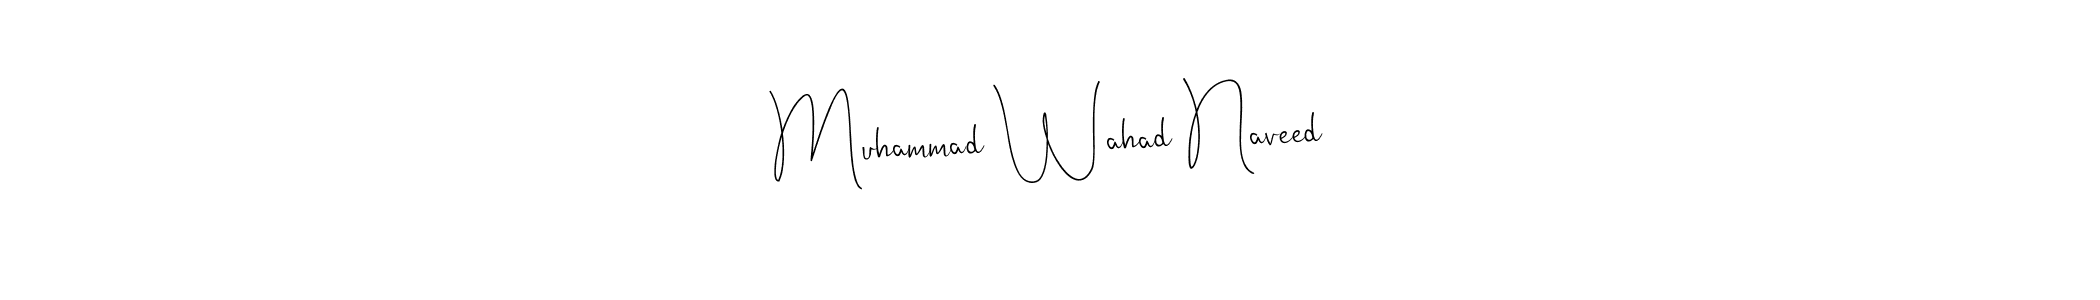 Muhammad Wahad Naveed